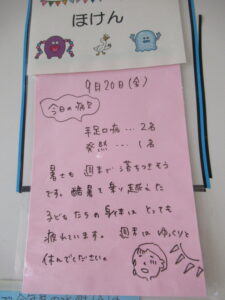 ほけん
9月20日(金)
今日の病欠
手足口病…2名
発熱…1名
暑さも週末で落ちつきそう
です。酷暑を乗り越えた
子どもたちの身体はとっても
疲れています。週末はゆっくりと
休んでください。